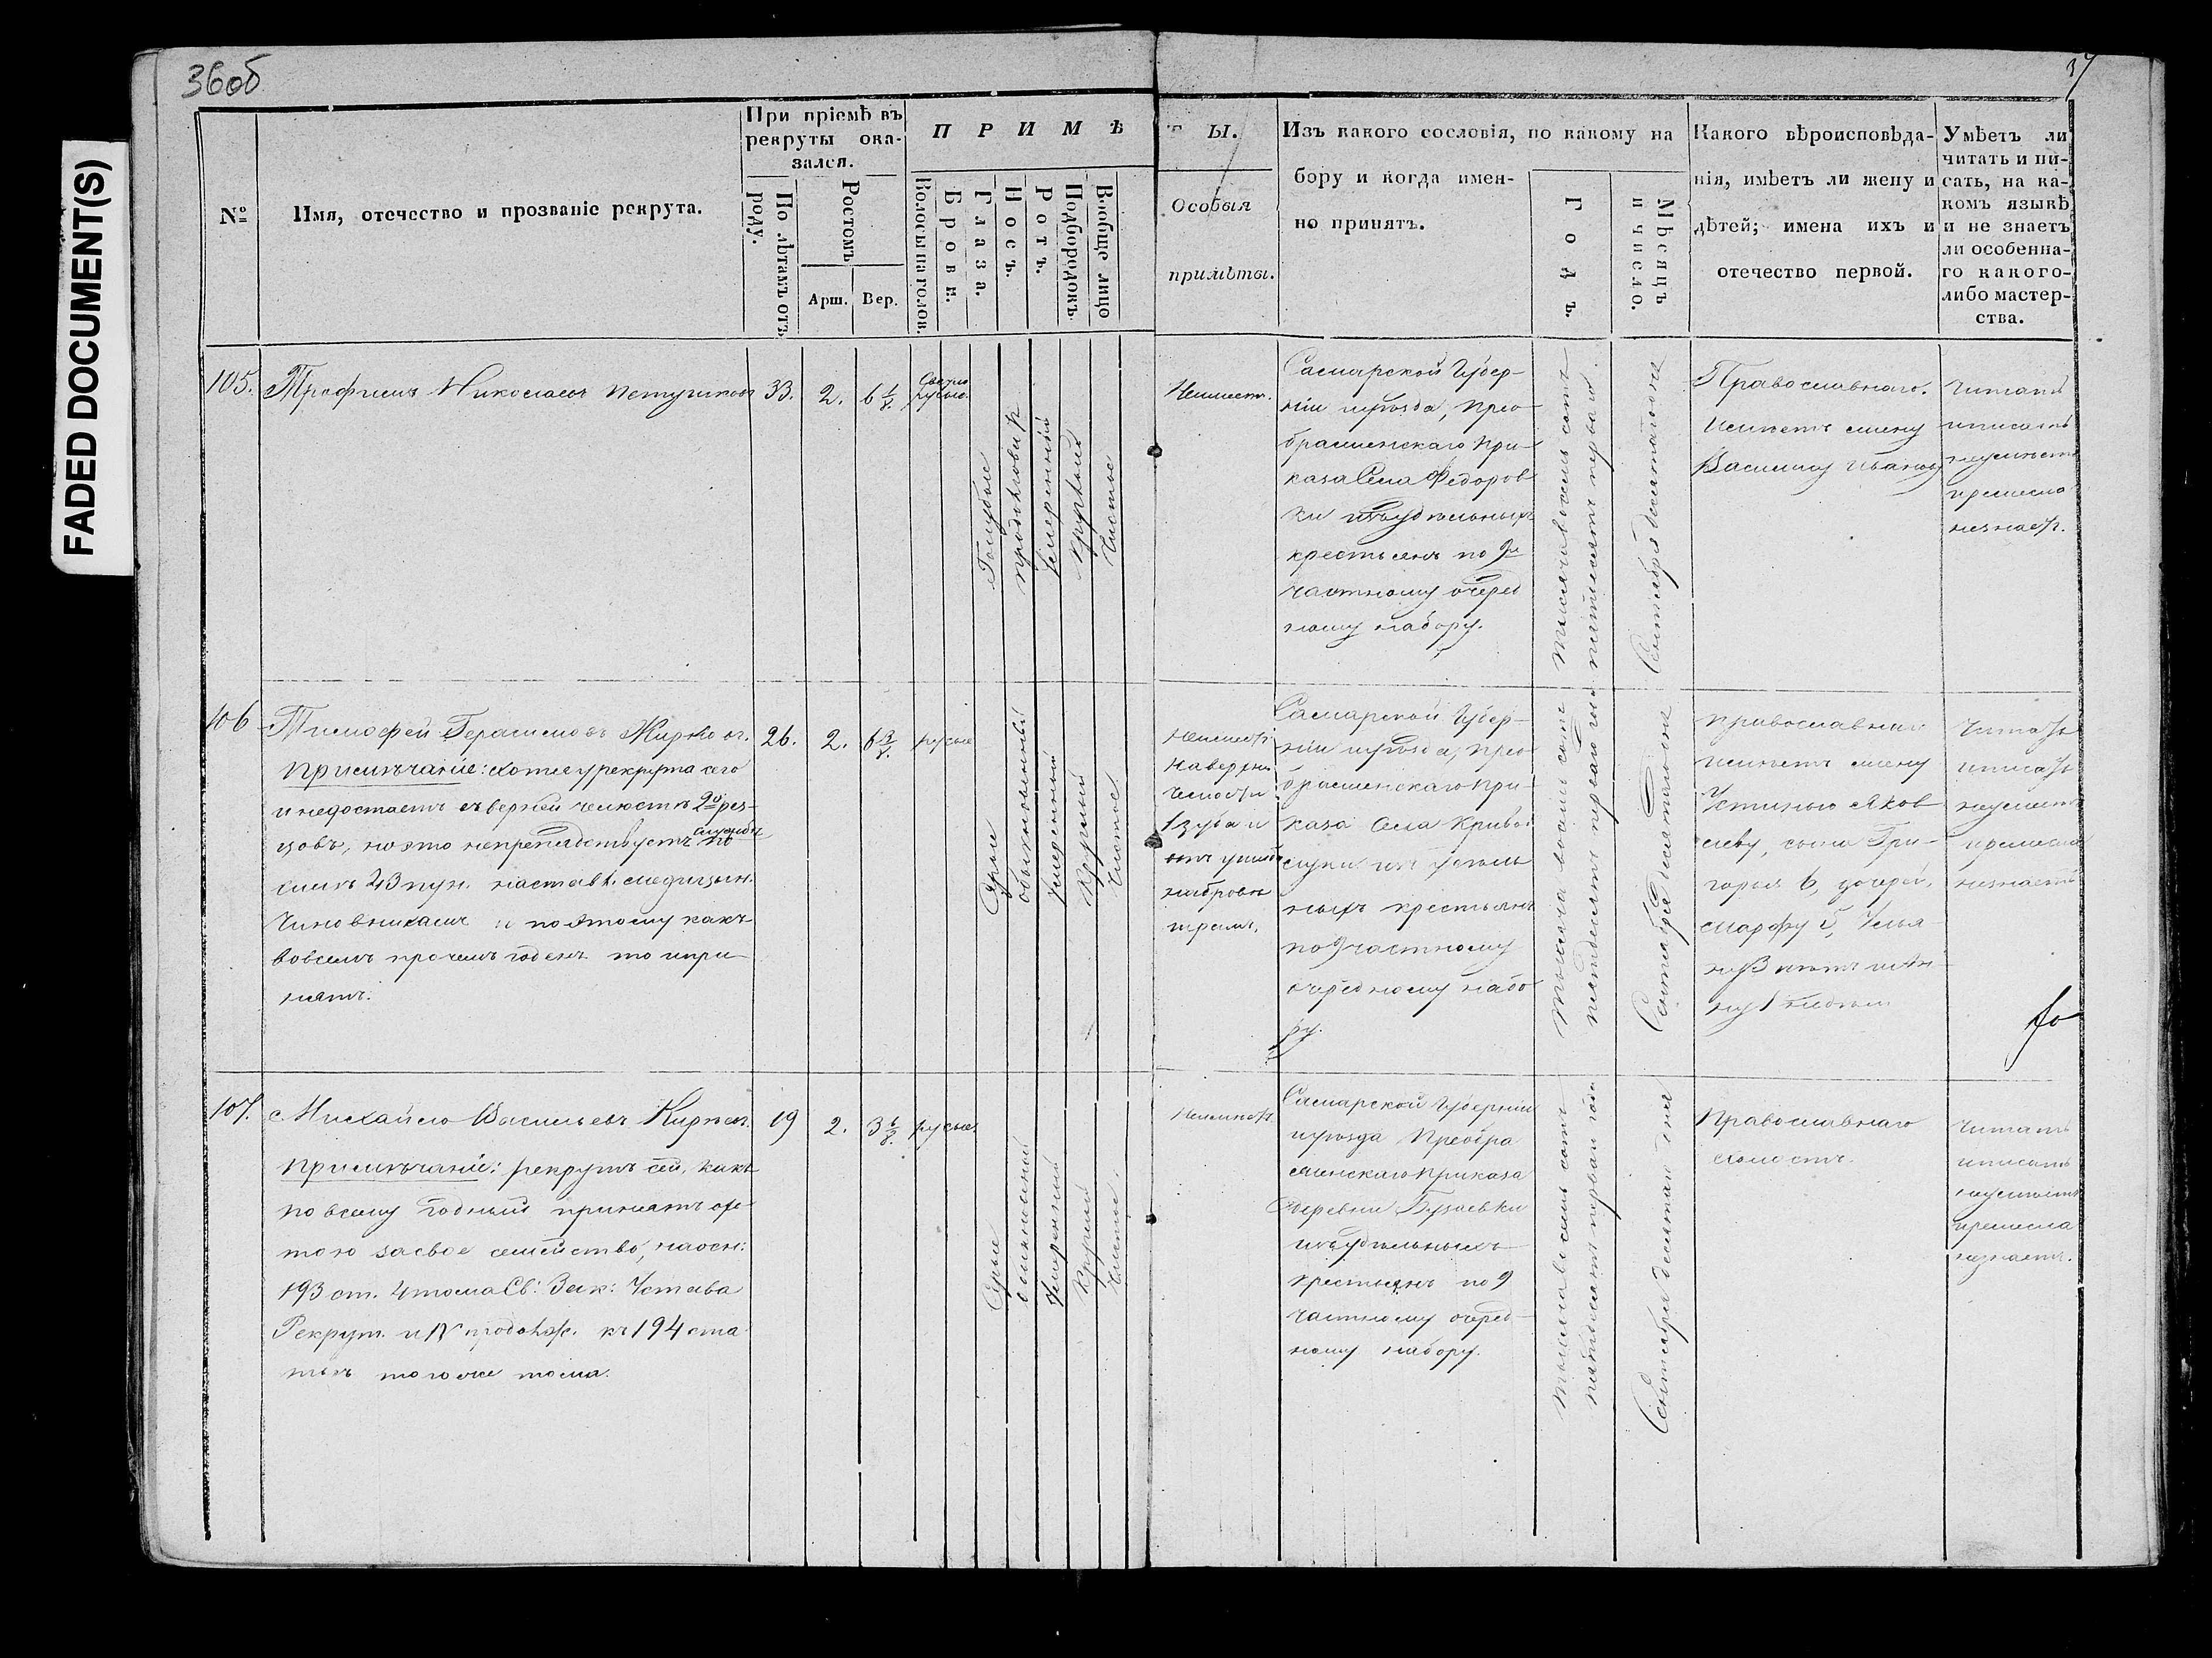 FADED DOCUMENT(S)
36об
37
№
Имя, отечество и прозваніе рекрута.
При пріемѣ въ
рекруты ока-
зался.
По лѣтамъ отъ
роду.
Ростомъ
Арш.
Вер.
ПРИМѢ
ТЫ.
Волосы на голов.
Брови.
Глаза.
Носъ.
Ротъ.
Подбородокъ
Вообще лицо
Особыя
примѣты.
Изъ какого сословія, по какому на
бору и когда имен-
но принятъ.
Годъ.
Мѣсяцъ
и число.
Какого вѣроисповѣда-
нія, имѣетъ ли жену и
дѣтей; имена ихъ и
отечество первой.
Умѣетъ ли
читать и пи-
сать, на ка-
комъ языкѣ
и не знаетъ
ли особенна-
го какого-
либо мастер-
ства.
105.
Трофимъ Николаевъ Петушковъ
33.
2.
6 1/8.
Свѣтло
русые.
Голубые
продолговат
умеренный
круглый
чистое
Неимеет.
Самарской Губер-
ніи иуѣзда, Прео-
браженскаго При-
каза Села Федоров
ки изъудѣльныхъ
крестьянъ по 9й
частному очеред
ному набору.
Тысяча восемь сотъ
пятьдесятъ перваго
Сентября десятагодня
Православнаго.
Имѣетъ жену
Василису Иванову
Читать
иписать
неумѣетъ
ремесла
незнает.
106
Тимофей Герасимовъ Жирновъ.
Примѣчаніе: хотя урекрута сего
инедостаетъ въ верхней челюсти 2х рез-
цовъ, но это непрепятствуетъ службѣ по
43 пун. наставл. медицын.
Чиновникамъ и поэтому какъ
вовсемъ прочемъ годенъ то ипри-
нятъ.
26.
2.
русые
Сѣрые
обыкновенный
умеренный
Круглый
Чистое
Неимеет
наверхн.
челюсти
1 зуба и
отъ ушиба
набровѣ
шрамъ.
Самарской Губер-
ніи иуѣзда, Прео
браженскаго При-
каза Села Кривой
луки изъ удѣль
ныхъ крестьянъ
по 9 частному
очередному набо
ру.
Тысяча восемь сотъ
пятдесятъ перваго года
Сентября десятагодня
Православнаго
имѣетъ жену
Устинью Яков
леву, сына Гри-
горья 6, дочерей,
Марфу 5, Улья
ну 3 лѣтъ и Ан-
ну 1 недѣли
Читать
иписать
неумеетъ
ремесла
незнаетъ
107.
Михайло Васильевъ Киряевъ.
Примѣчаніе: рекрутъ сей, какъ
по всему годный принятъ охо-
тою засвое семейство, наосн:
193 ст. 4 тома Св: Зак: Устава
Рекрут. и IV продолж. къ 194 ста
тьѣ того же тома.
19
2.
3 6/8.
русые.
Сѣрые
обыкновенной
Умеренный
Круглый
Чистое.
Неимеет
Самарской Губерніи
иуѣзда Преобра
женскаго Приказа
деревни Бузаевки
изъудѣльныхъ
крестьянъ по 9
частному очеред-
ному набору.
Тысяча восемь сотъ
пятьдесятъ перваго года
Сентября десятаго дня
Православнаго
холостъ.
Читать
иписать
неумѣетъ
ремесла
незнаетъ.